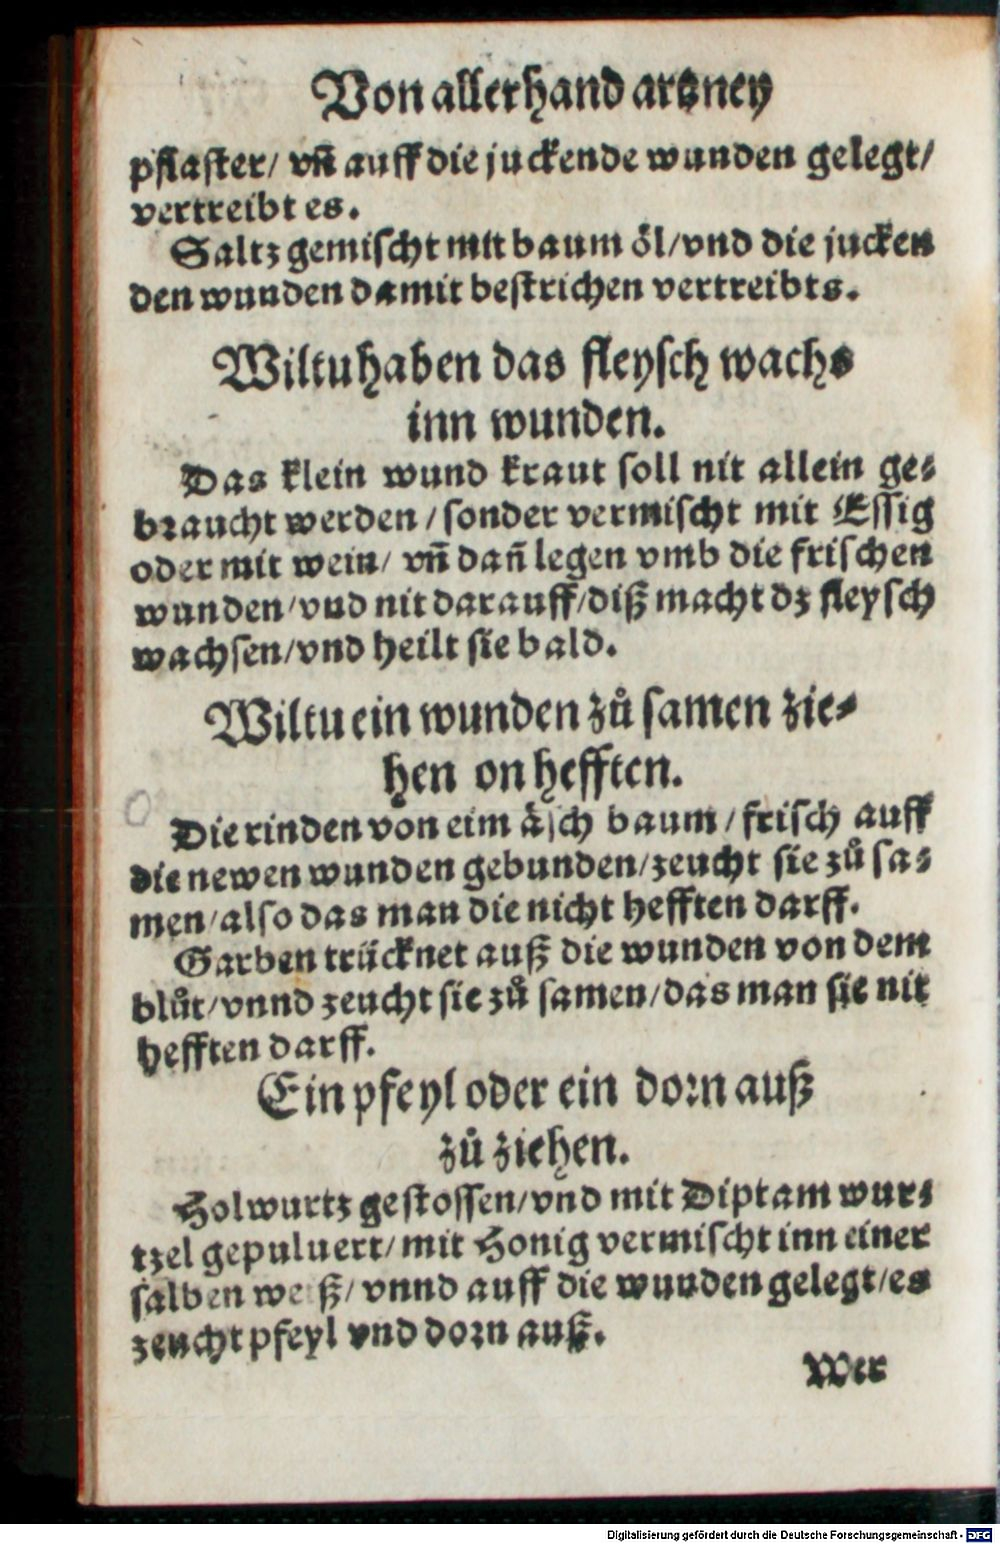 Von allerhand artzney
pflaster/ vñ auff die juckende wunden gelegt/
vertreibt es.
Saltz gemischt mit baum öl/vnd die jucken
den wunden damit bestrichen vertreibts.
Wiltu haben das fleysch wachs
inn wunden.
Das klein wund kraut soll nit allein ge⸗
braucht werden / sonder vermischt mit Essig
oder mit wein/ vñ dañ legen vmb die frischen
wunden/vnd nit darauff/diß macht dz fleysch
wachsen/vnd heilt sie bald.
Wiltu ein wunden zů samen zie⸗
hen on hefften.
Die rinden von eim äsch baum / frisch auff
die newen wunden gebunden/zeucht sie zů sa⸗
men/also das man die nicht hefften darff.
Garben trücknet auß die wunden von dem
blůt/vnnd zeucht sie zů samen/das man sie nit
hefften darff.
Ein pfeyl oder ein dorn auß
zů ziehen.
Holwurtz gestossen/vnd mit Diptam wur⸗
tzel gepuluert/mit Honig vermischt inn einer
salben weiß/ vnnd auff die wunden gelegt/es
zeucht pfeyl vnd dorn auß.
Wer
Digitalisierung gefördert durch die Deutsche Forschungsgemeinschaft - DFG